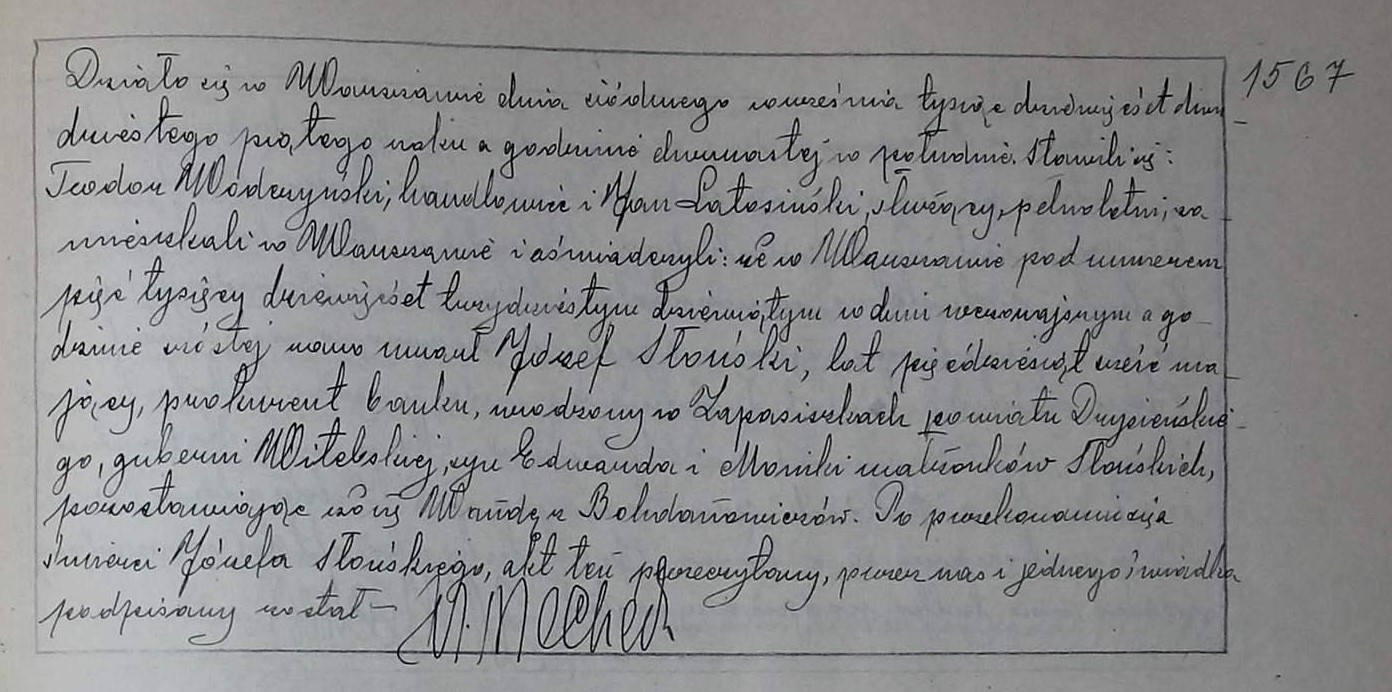 Działo się w Warszawie dnia siódmego września tysiąc dziewięćset dwu
dziestego piątego roku o godzinie dwunastej w południe. Stawili się:
Teodor Wódczyński, handlowiec i Jan Latosiński, służący, pełnoletni, za
mieszkali w Warszawie i oświadczyli: że w Warszawie pod numerem
pięć tysięcy dziewięćset trzydziestym dziewiątym w dniu wczorajszym o go
dzinie szóstej rano umarł Józef Słoński, lat pięćdziesiąt sześć ma
jący, prokurent banku, urodzony w Zapasiszkach powiatu Drysieńskie
go, guberni Witebskiej, syn Edwarda i Moniki małżonków Słońskich,
pozostawiając żonę Wandę z Bohdanowiczów. Po przekonaniu się o
śmierci Józefa Słońskiego, akt ten przeczytany, przez nas i jednego świadka
podpisany został –
1567